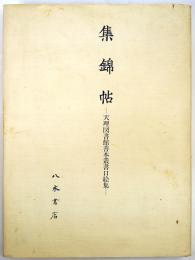 集錦帖
—天理図書館善本叢書口絵集—
八木書店